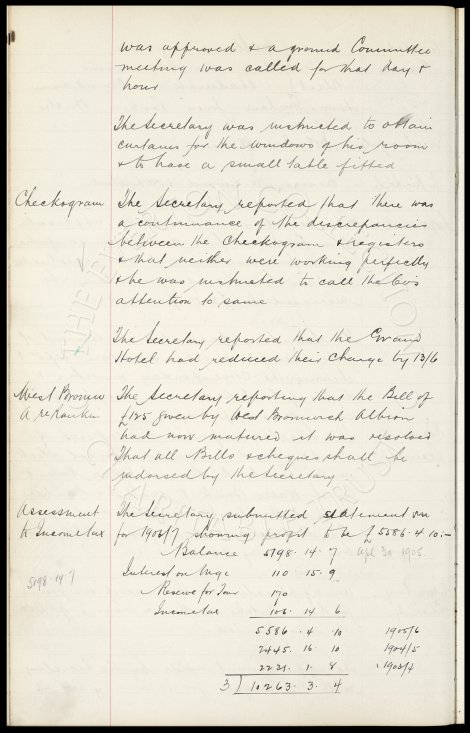 was approved & a ground Committee
meeting was called for that day &
hour
The Secretary was instructed to obtain
curtains for the windows of his room
& to have a small table fitted
Checkogram
The Secretary reported that there was
a continuance of the discrepancies
between the Checkogram & registers
& that neither were working perfectly
& he was instructed to call the Co's
attention to same
The Secretary reported that the Grand
Hotel had reduced their Charge by 13/6
West Bromw
A re Rankin
The Secretary reporting that the Bill of
£125 given by West Bromwich Albion
had now matured it was resolved
that all Bills & cheques shall be
endorsed by the Secretary
Assessment
to Income tax
The Secretary submitted statement
for 1906/7 showing profit to be £5586.4.10:-
Balance 5198.14.7 Apl 30 1906
Interest on 110 15.9
5198.14.7
Reserve for Tour 170
Income tax 106. 14 6
5586 . 4 . 10 1905/6
2445. 16 . 10 1904/5
2231. 1. 8 1903/4
3) 10263. 3. 4